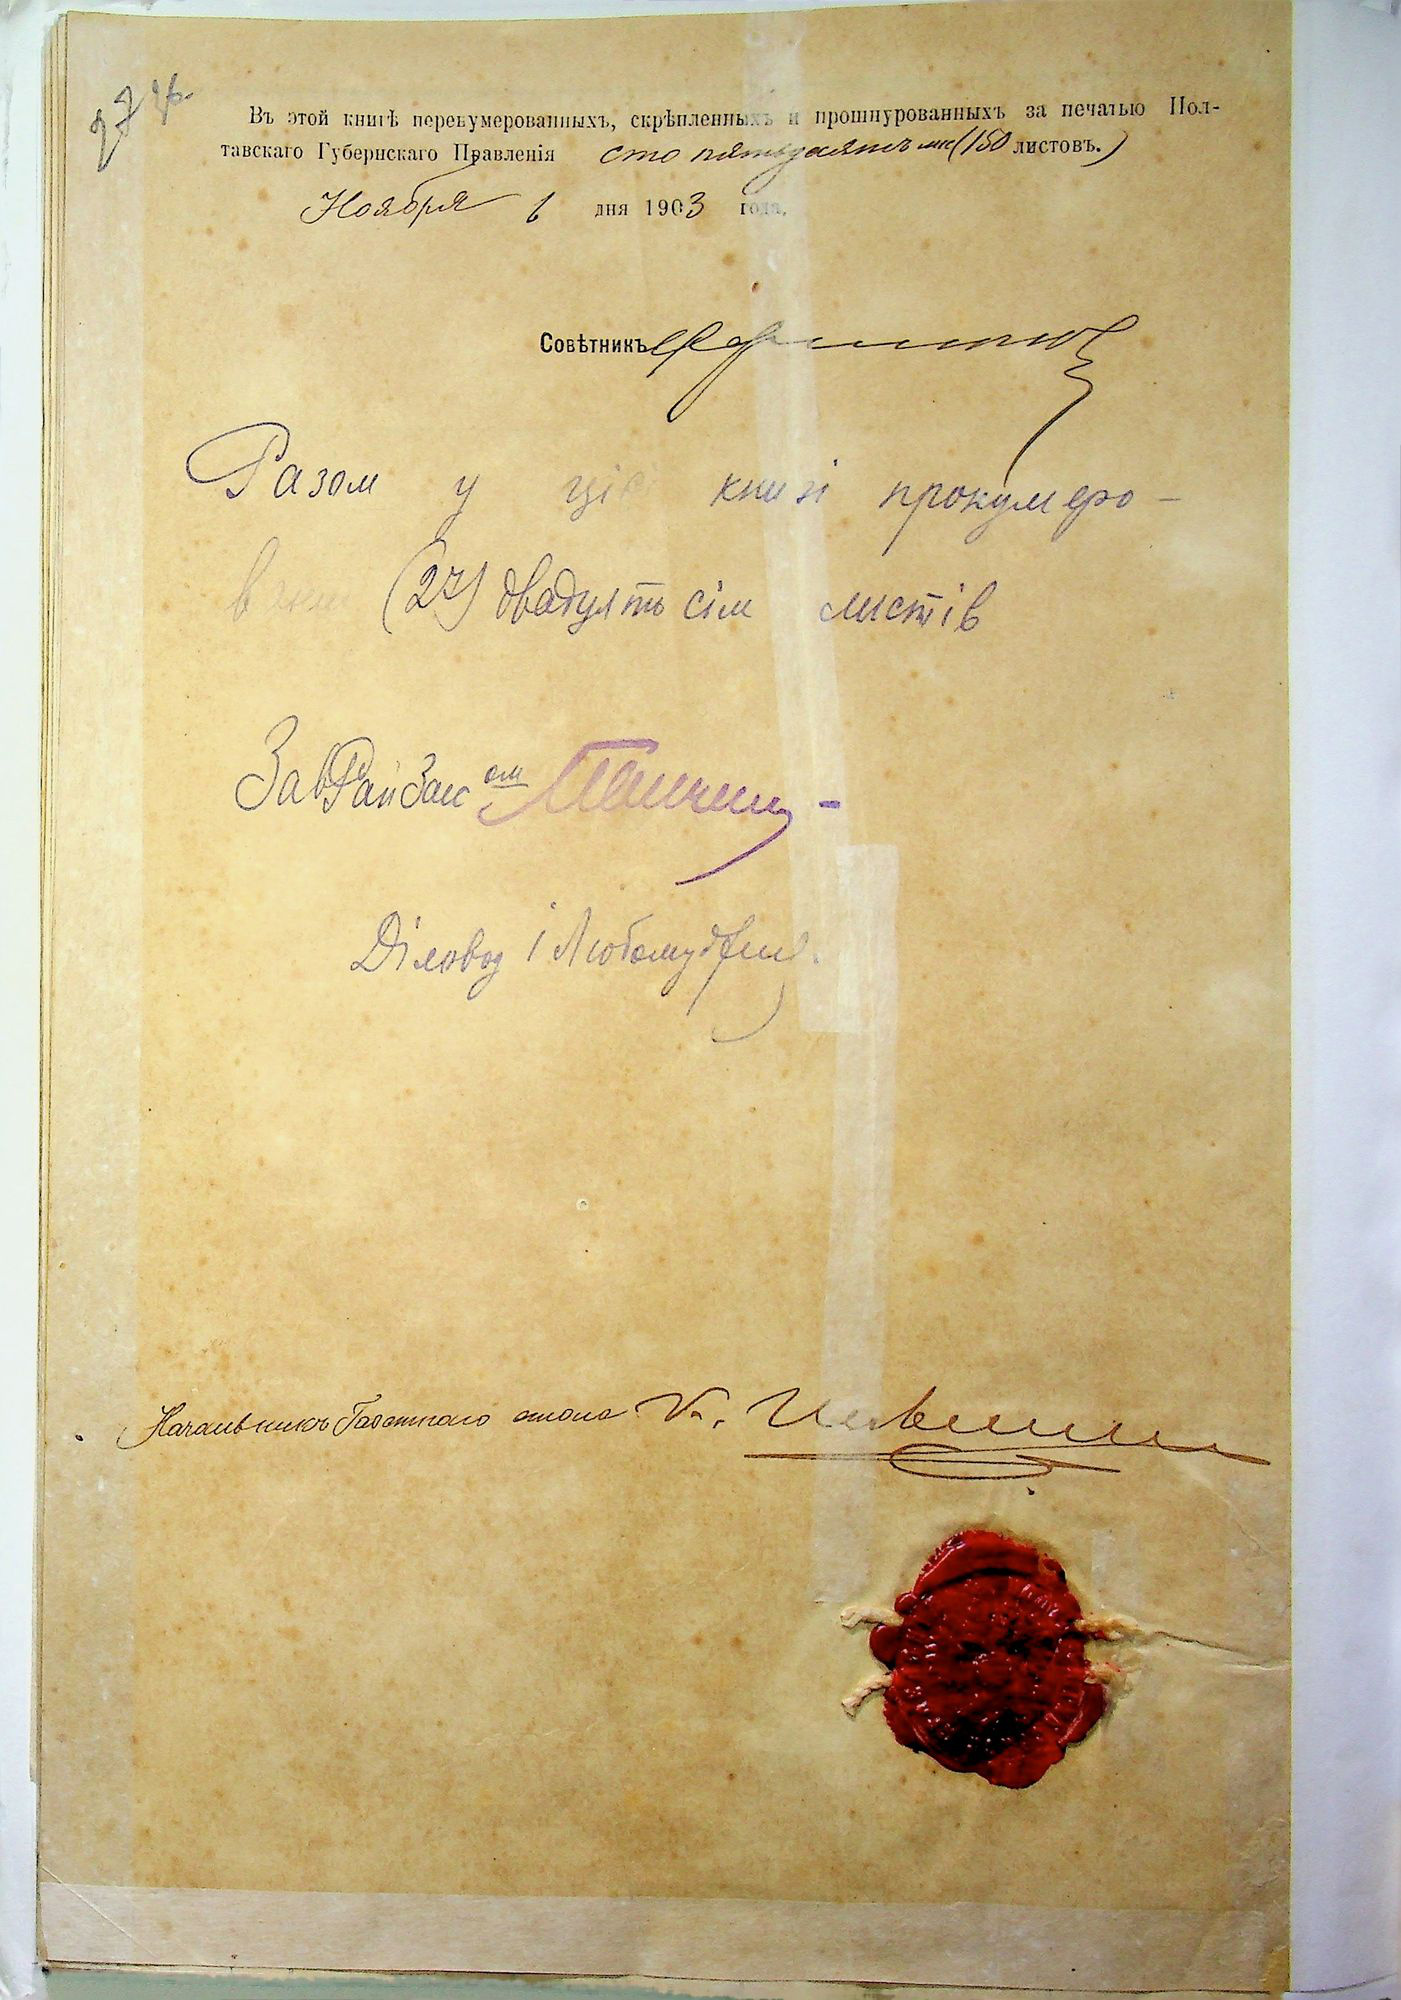 27
Въ этой книгѣ перенумерованныхъ, скрѣпленныхъ и прошнурованныхъ за печатью Пол-
тавскаго Губернскаго Правленія сто пятьдесятъ (150 листовъ.)
Ноября 6 дня 1903 года.
Совѣтникъ
Разом у цій книзі пронумеро-
вано (27) двадцять сім листів
ЗавРайЗаг
Діловод Любомудрив
Начальникъ Газетнаго стола